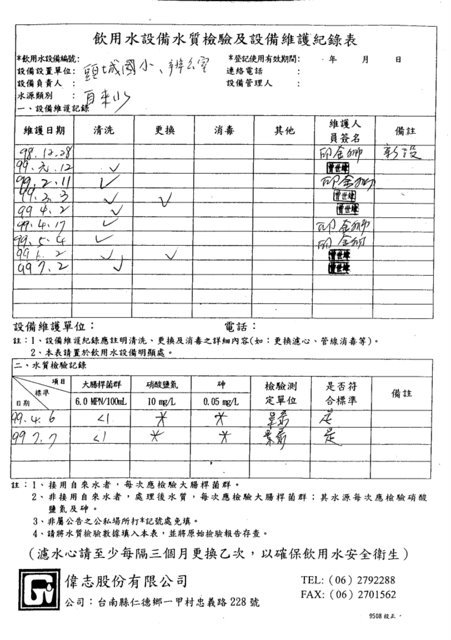 飲用水設備水質檢驗及設備維護紀錄表
*飲用水設備編號: *登記使用有效期間: 年 月 日
設備設置單位: 頭城國小、辦公室 連絡電話 :
設備負責人 : 設備管理人 :
水源類別 : 自來水
一、設備維護記錄
維護日期 清洗 更換 消毒 其他 維護人員簽名 備註
98.12.28 新設
99.元.12 ✓
99.2.11 ✓
99.3.3 ✓ ✓
99.4.2 ✓
99.4.17 ✓
99.5.4 ✓
99.6.2 ✓ ✓
99.7.2 ✓
設備維護單位: 電話:
註:1、設備維護紀錄應註明清洗、更換及消毒之詳細內容(如:更換濾心、管線消毒等)。
2、本表請置於飲用水設備明顯處。
二、水質檢驗記錄
項目 標準 日期 大腸桿菌群 6.0 MPN/100mL 硝酸鹽氮 10 mg/L 砷 0.05 mg/L 檢驗測定單位 是否符合標準 備註
99.4.6 <1 * * 是
99.7.7 <1 * * 是
註:1、接用自來水者,每次應檢驗大腸桿菌群。
2、非接用自來水者,處理後水質,每次應檢驗大腸桿菌群;其水源每次應檢驗硝酸
鹽氮及砷。
3、非屬公告之公私場所打*記號處免填。
4、請將水質檢驗數據填入本表,並將原始檢驗報告存查。
(濾水心請至少每隔三個月更換乙次,以確保飲用水安全衛生)
偉志股份有限公司 TEL: (06) 2792288
公司:台南縣仁德鄉一甲村忠義路 228 號 FAX: (06) 2701562
9508 校正